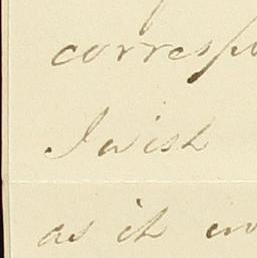 corresp
I wish
as it